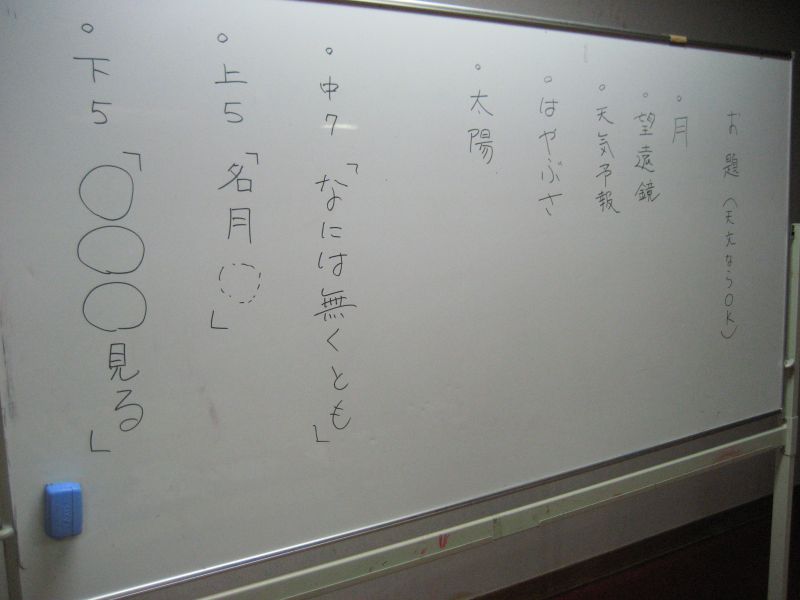 お題（天文ならOK）
・月
・望遠鏡
・天気予報
・はやぶさ
・太陽
・中7「なには無くとも」
・上5「名月◌」
・下5「○○○見る」